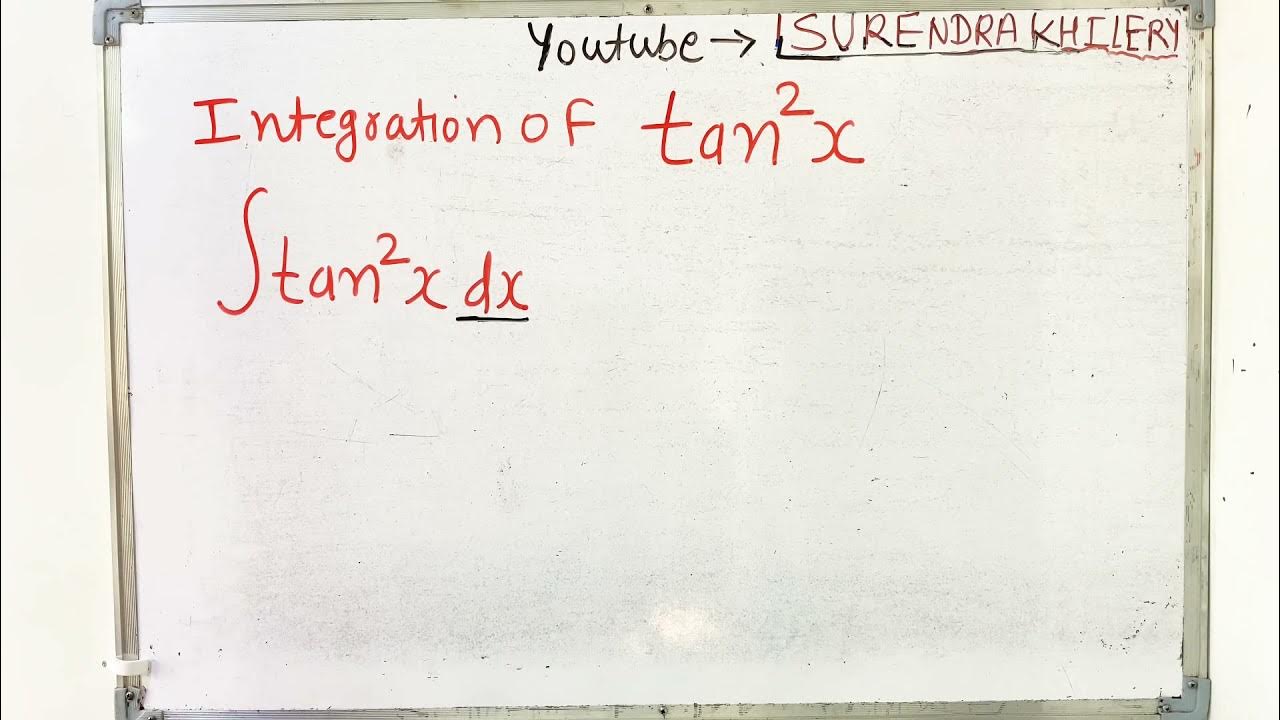 Youtube → SURENDRA KHILERY
Integration of tan²x
∫tan²x dx